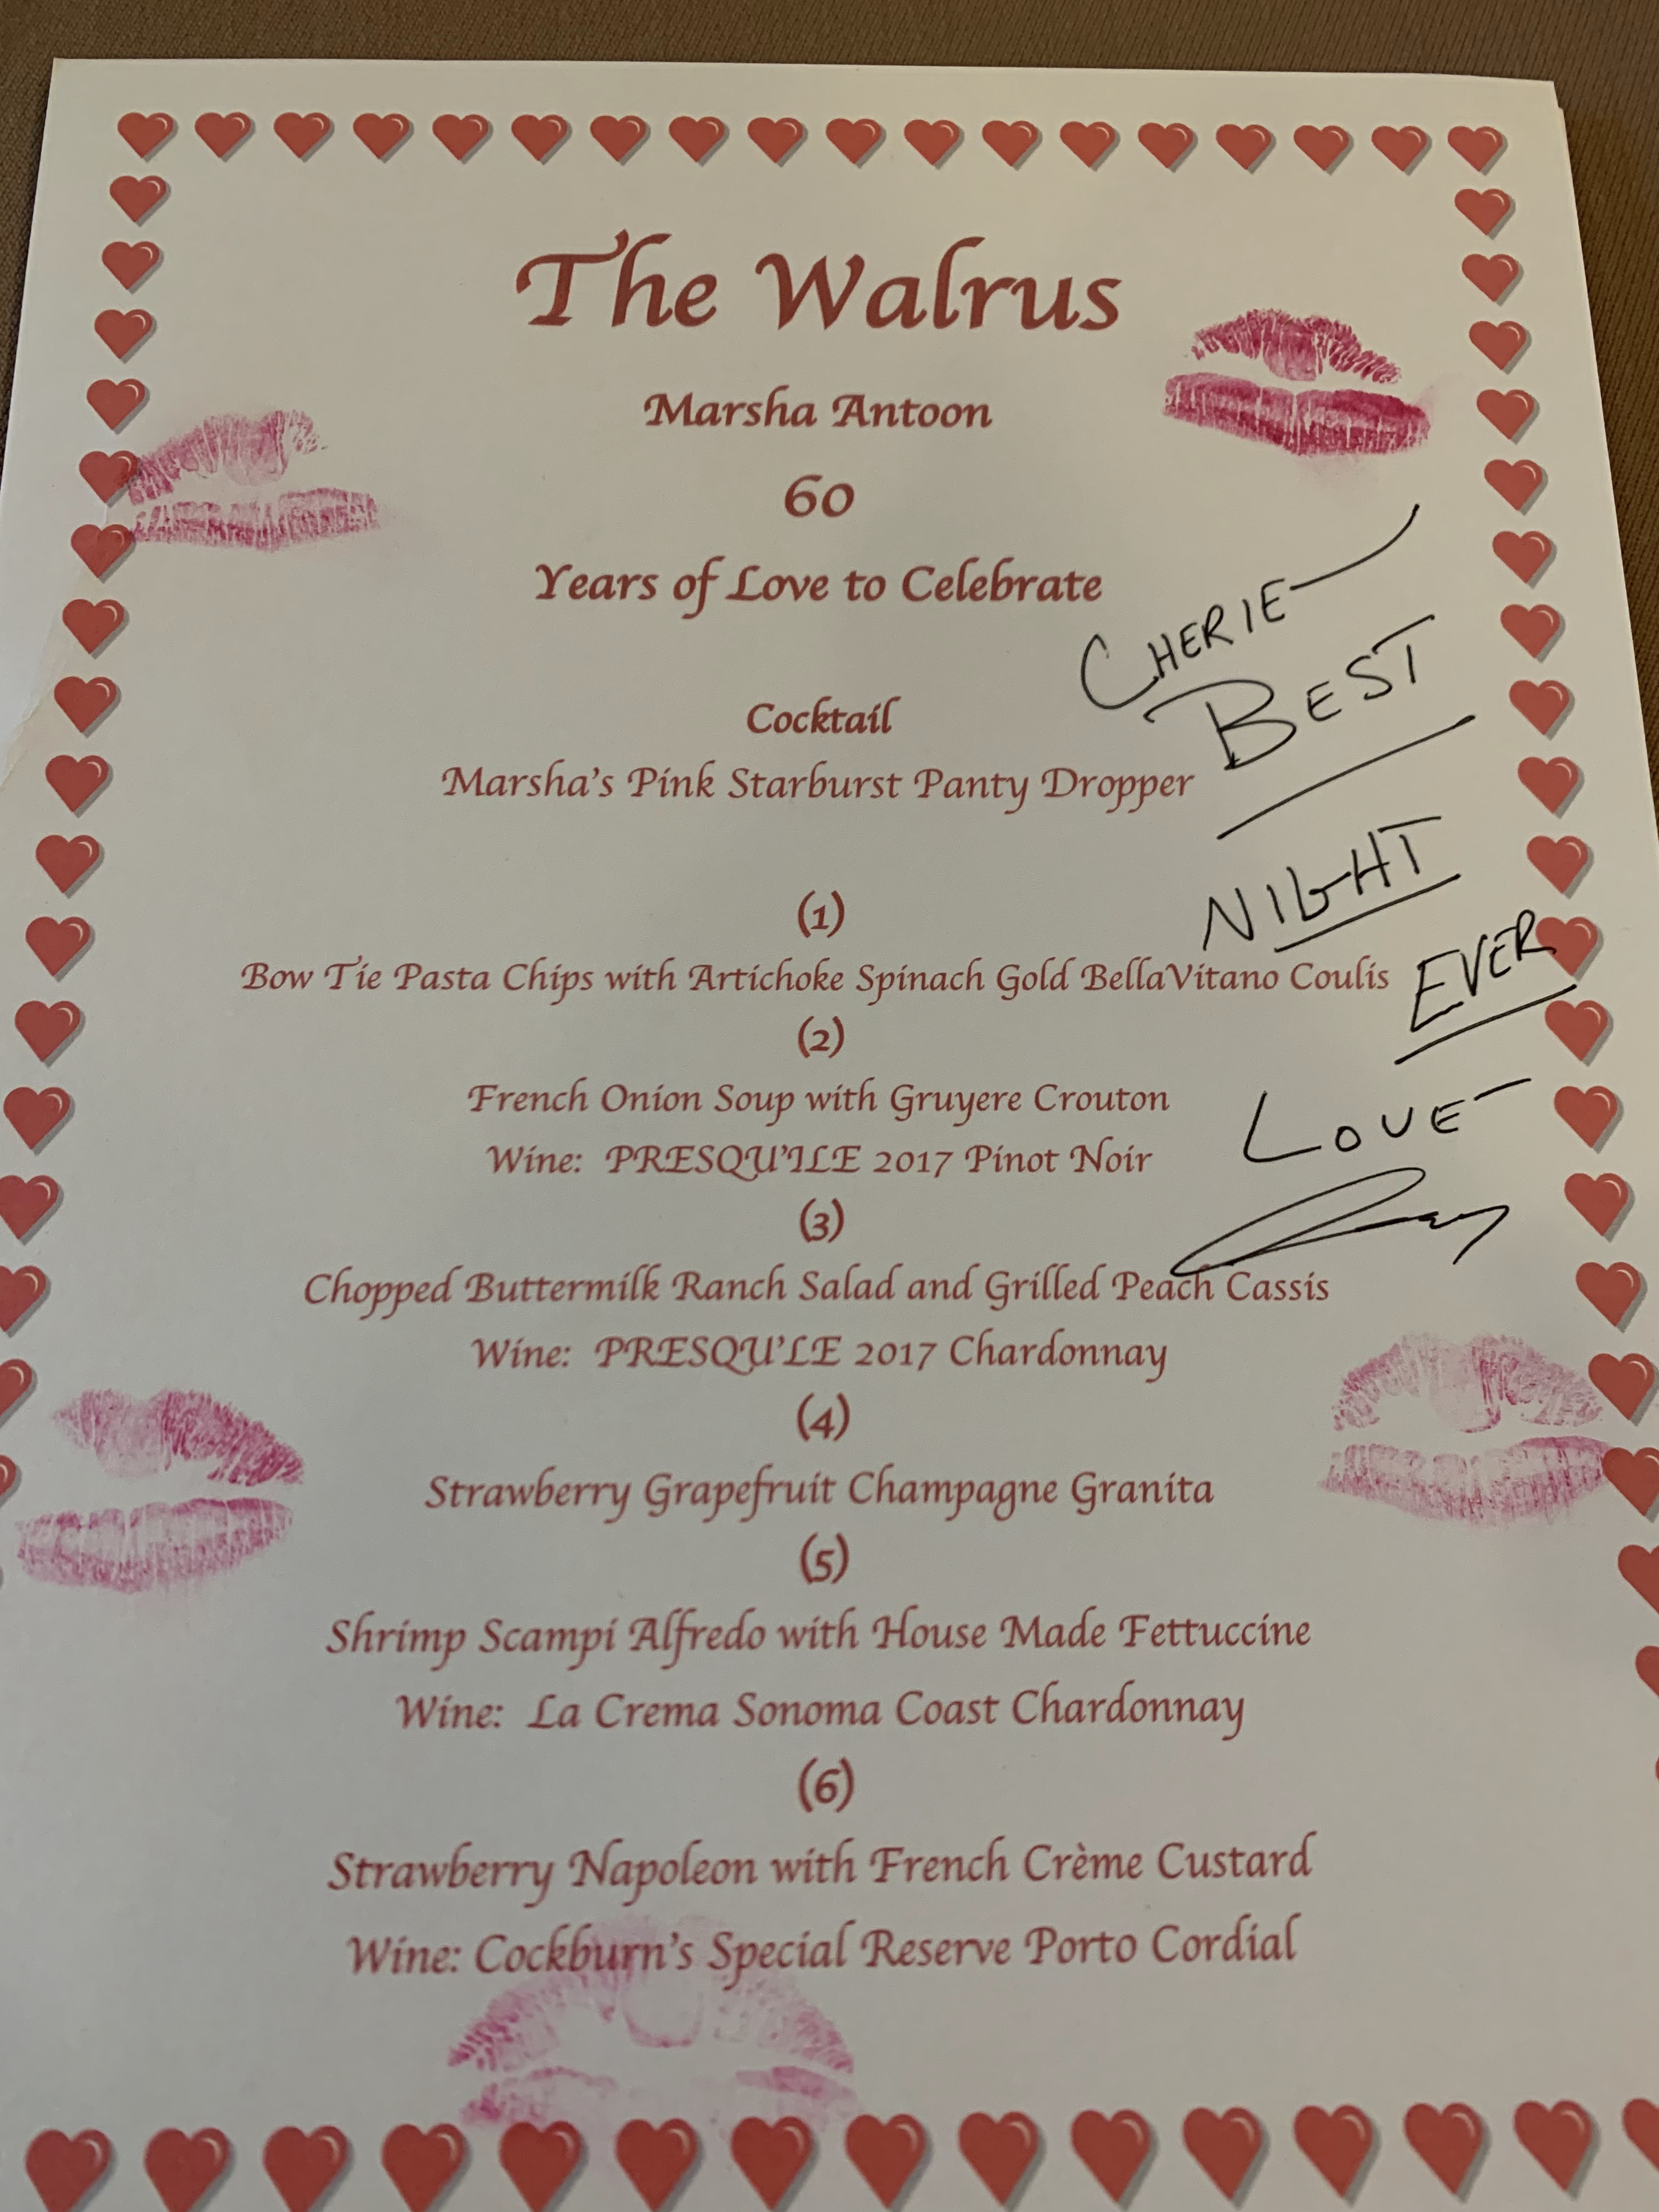 The Walrus
Marsha Antoon
60
Years of Love to Celebrate
Cocktail
Marsha's Pink Starburst Panty Dropper
(1)
Bow Tie Pasta Chips with Artichoke Spinach Gold BellaVitano Coulis
(2)
French Onion Soup with Gruyere Crouton
Wine: PRESQU'ILE 2017 Pinot Noir
(3)
Chopped Buttermilk Ranch Salad and Grilled Peach Cassis
Wine: PRESQU'LE 2017 Chardonnay
(4)
Strawberry Grapefruit Champagne Granita
(5)
Shrimp Scampi Alfredo with House Made Fettuccine
Wine: La Crema Sonoma Coast Chardonnay
(6)
Strawberry Napoleon with French Crème Custard
Wine: Cockburn's Special Reserve Porto Cordial
CHERIE
BEST
NIGHT
EVER
LOVE